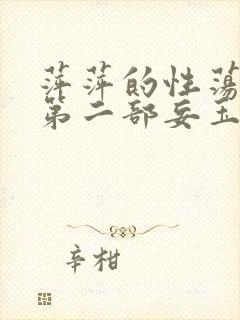 萍萍的性荡
第二部妄玉
辛柑